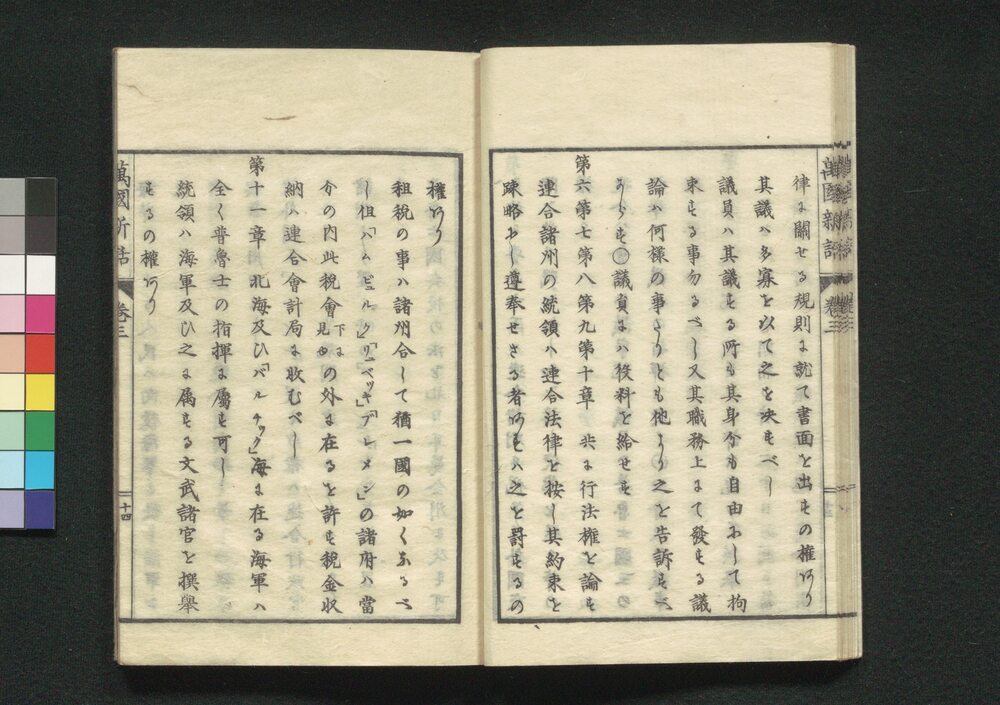 律ニ關せる規則ニ就て書面を出すの權あり
其議ハ多寡を以て之を决すべし
議員ハ其議する所も其身分も自由にして拘
束する事勿るべし又其職務上にて發する議
論ハ何様の事たりとも他より之を告訴すべ
からず○議員にハ役料を給せず
第六第七第八第九第十章 共に行法權を論ず
連合諸州の統領ハ連合法律を按し其約束を
疎略にし遵奉せさる者あれハ之を罰するの
權あり
租税の事ハ諸州合して猶一國の如くなるべ
し但「ハムビュルク」「リユベッキ」「ブレーメン」の諸府ハ當
分の内此税會下に見ゆの外に在るを許す税金収
納ハ連合會計局に收むべし
第十一章 北海及ひ「バルチック」海に在る海軍ハ
全く普魯士の指揮に屬す可し
統領ハ海軍及ひ之に属する文武諸官を撰舉
するの權あり
萬國新話 卷三 十四